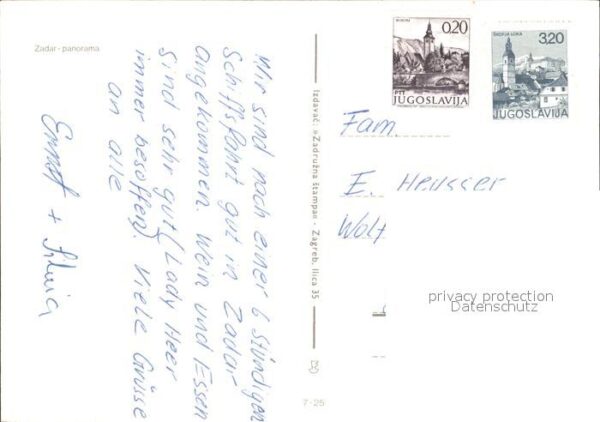 Zadar - panorama
Wir sind nach einer 6 stündigen
Schiffsfahrt gut in Zadar
angekommen. Wein und Essen
sind sehr gut (Lady Heer
immer besoffen). Viele Grüsse
an alle
Ernst + Silvia
Izdavač: »Zadružna štampa« - Zagreb, Ilica 35
7-25
0,20
PTT
JUGOSLAVIJA
ŠKOFJA LOKA
3,20
JUGOSLAVIJA
Fam.
E. Heusser
Wolf
privacy protection
Datenschutz